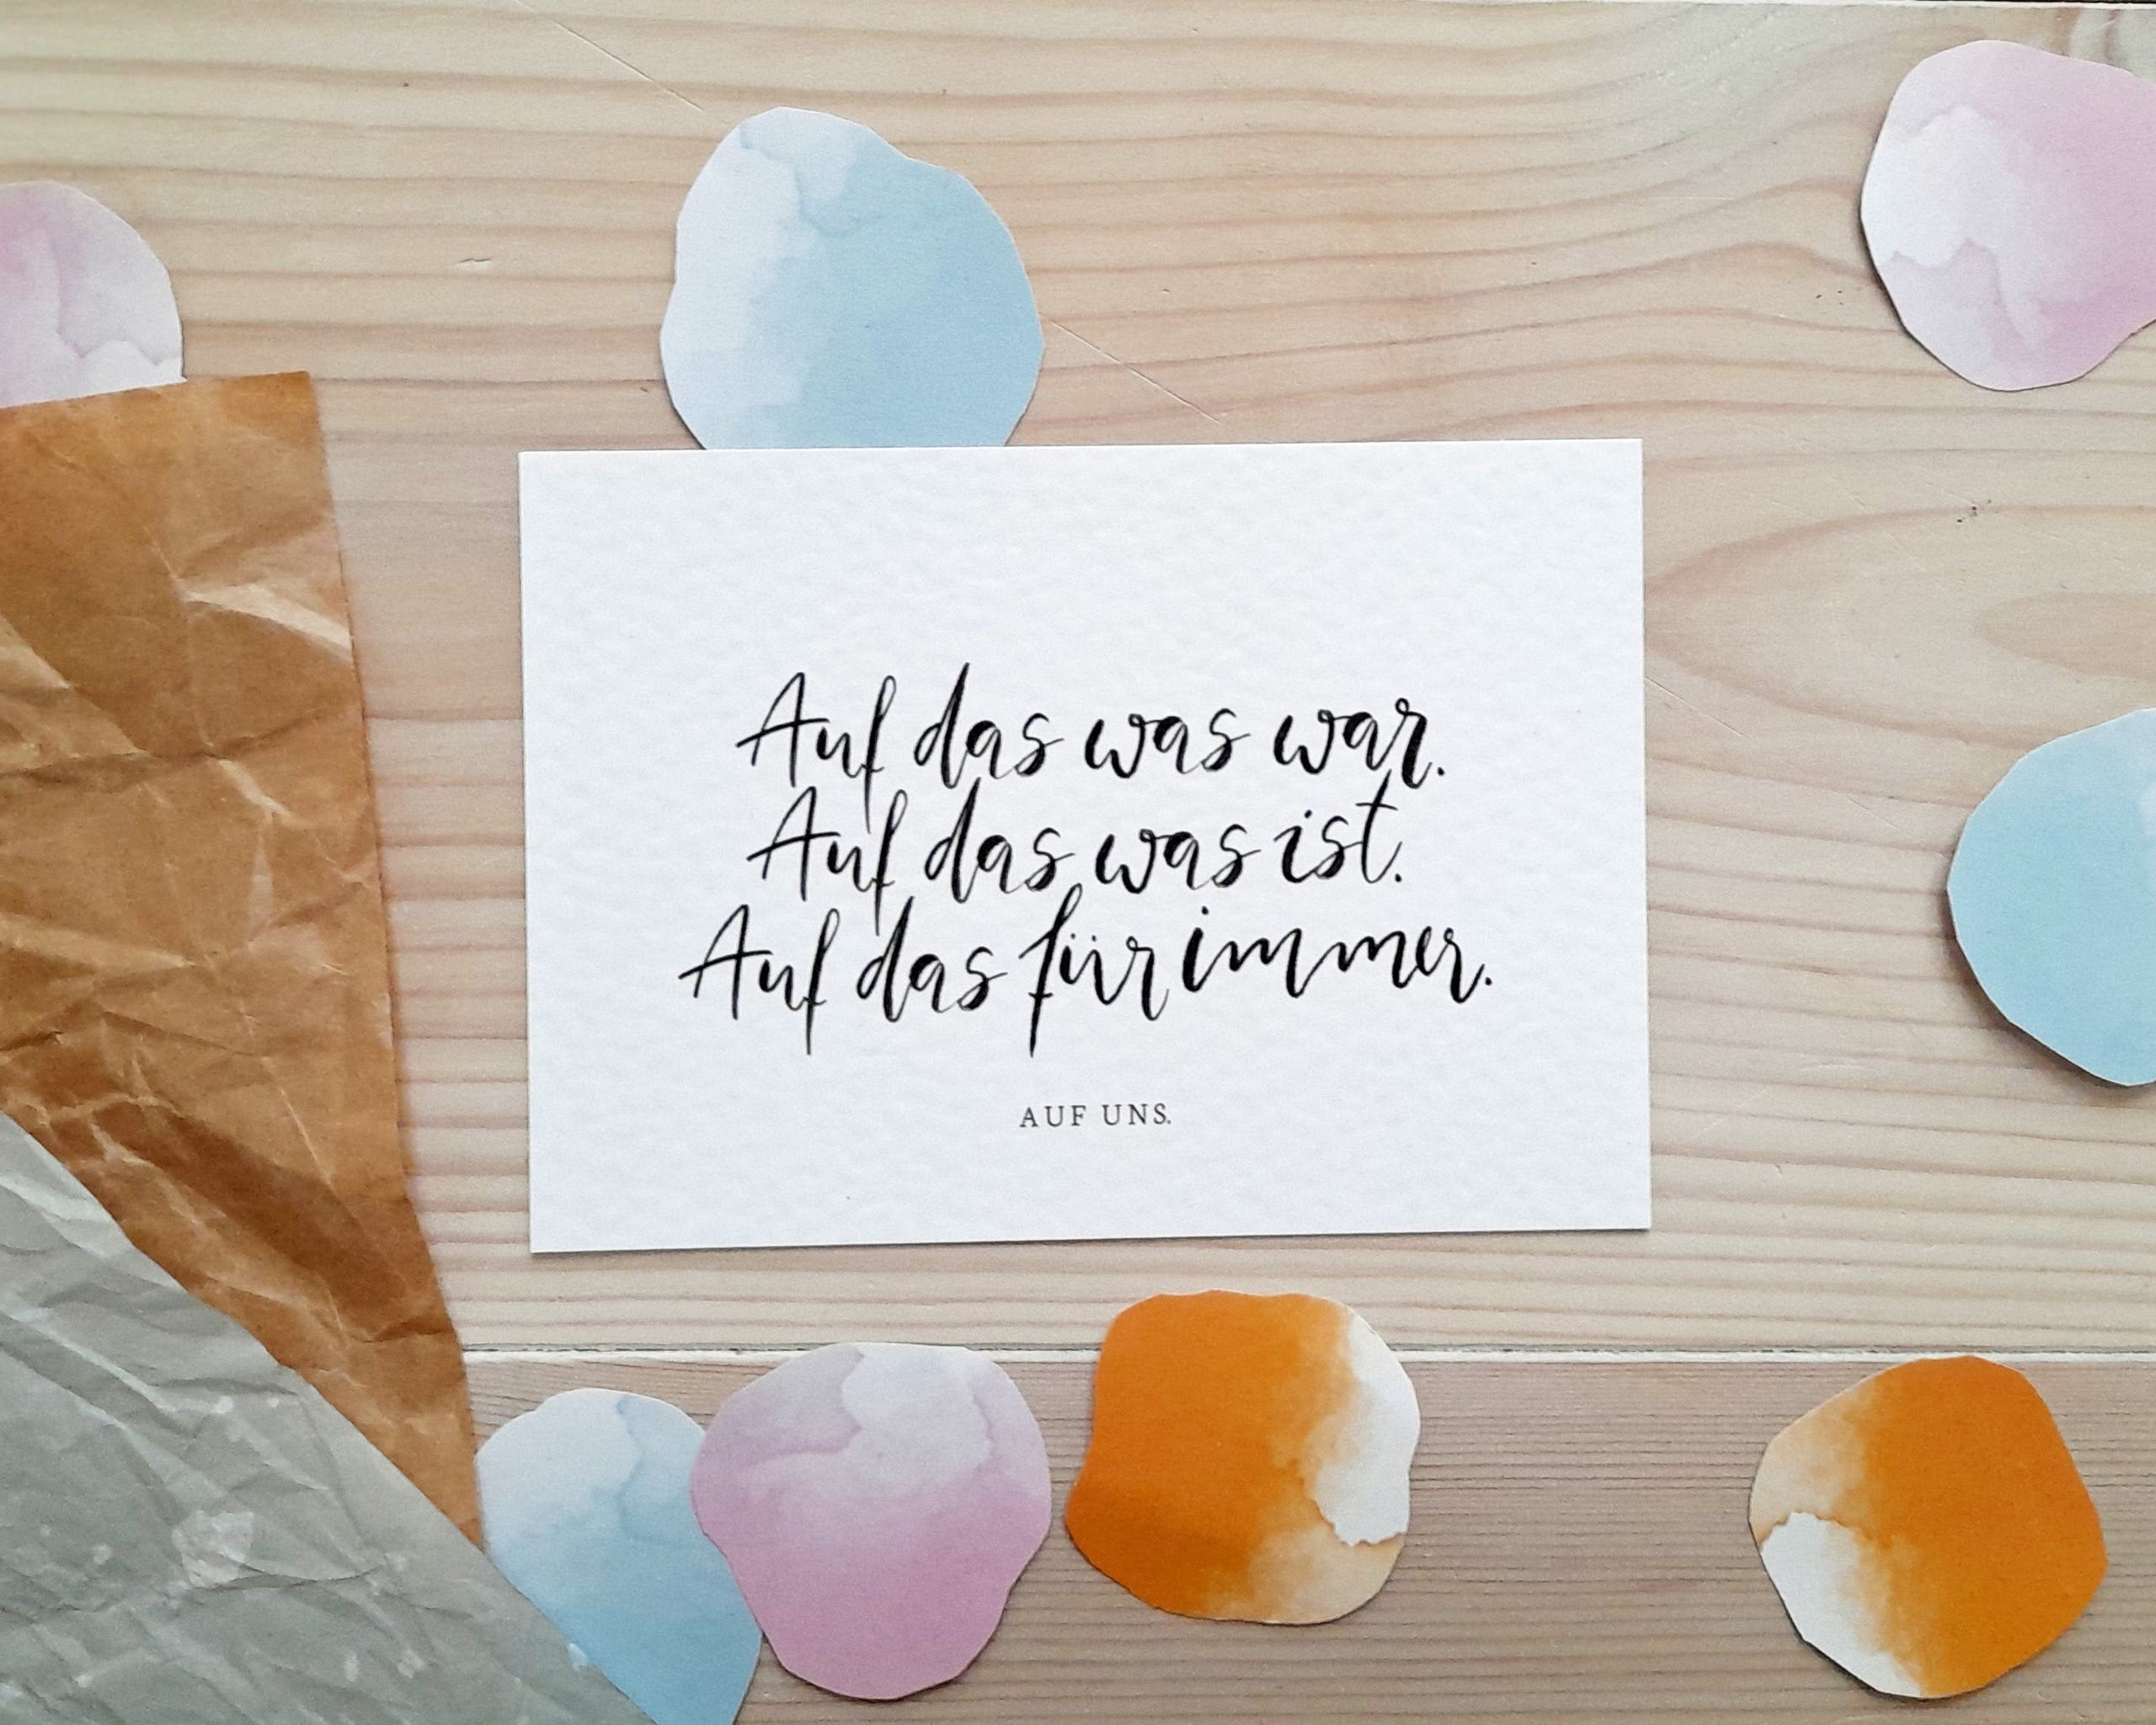 Auf das was war.
Auf das was ist.
Auf das für immer.
AUF UNS.